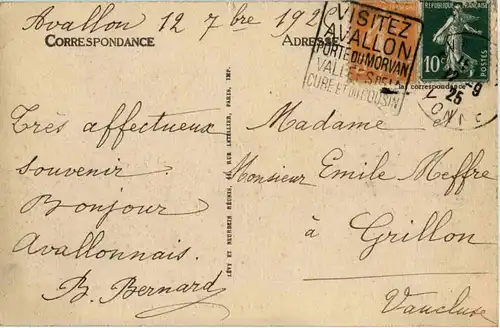 Avallon 12 7bre 192
CORRESPONDANCE
ADRESSE
VISITEZ
AVALLON
PORTE DU MORVAN
VALLÉES DE LA
CURE ET DU COUSIN
RÉPUBLIQUE FRANÇAISE
10c
POSTES
la correspondance
12-9
25
YONNE
Très affectueux
souvenir.
Bonjour
Avallonnais.
B. Bernard
LÉVY ET NEURDEIN RÉUNIS, 44, RUE LETELLIER, PARIS, IMP.
Madame
Monsieur Emile Meffre
à Grillon
Vaucluse